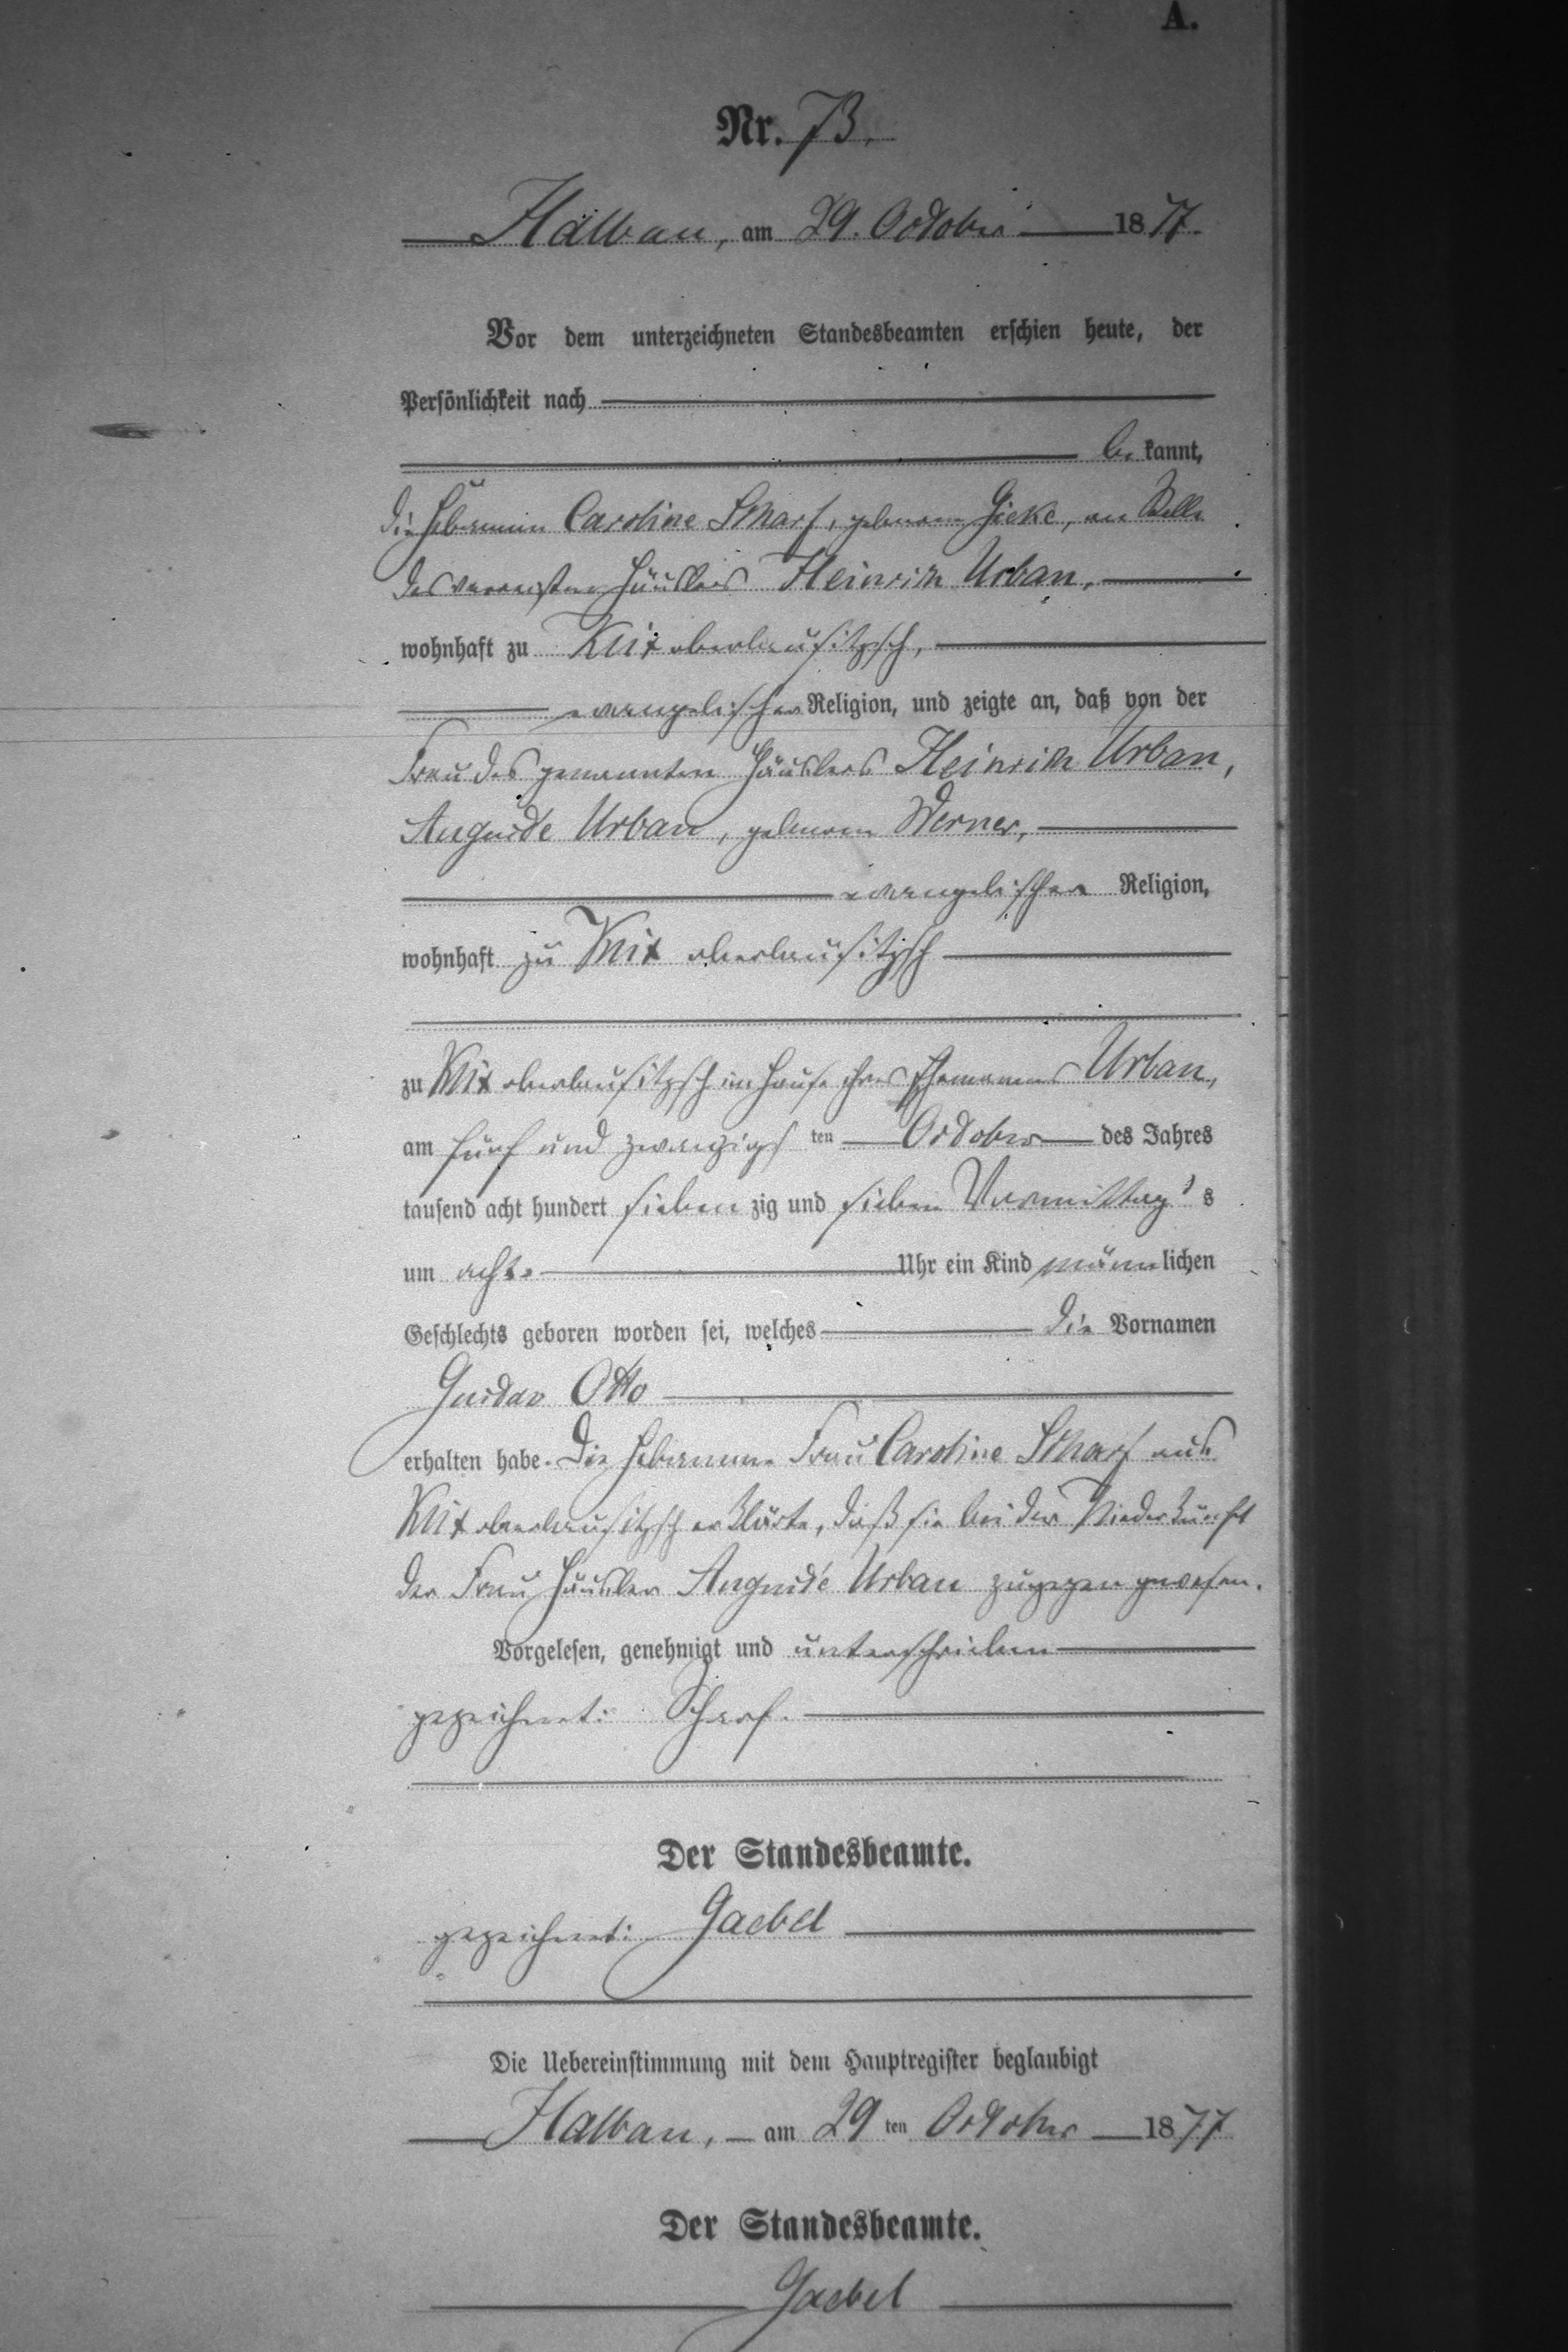 A.
Nr. 73.
Halbau, am 29. October 1877.
Vor dem unterzeichneten Standesbeamten erschien heute, der
Persönlichkeit nach
be kannt,
die Hebamme Caroline Scharf, geborene Gieke, an Stelle
des verreisten Häuslers Heinrich Urban,
wohnhaft zu Klix oberlausitzsch,
evangelischer Religion, und zeigte an, daß von der
Frau des genannten Häuslers Heinrich Urban,
Auguste Urban, geborene Werner,
evangelischer Religion,
wohnhaft zu Klix oberlausitzsch
zu Klix oberlausitzsch im Hause ihres Ehemannes Urban,
am fünf und zwanzigsten October des Jahres
tausend acht hundert sieben zig und sieben Vormittags
um acht Uhr ein Kind männlichen
Geschlechts geboren worden sei, welches die Vornamen
Gustav Otto
erhalten habe. Die Hebamme Frau Caroline Scharf aus
Klix oberlausitzsch erklärte, daß sie bei der Niederkunft
der Frau Häusler Auguste Urban zugegen gewesen.
Vorgelesen, genehmigt und unterschrieben
gezeichnet: Scharf.
Der Standesbeamte.
gezeichnet: Gaebel
Die Uebereinstimmung mit dem Hauptregister beglaubigt
Halbau, am 29 ten October 1877
Der Standesbeamte.
Gaebel